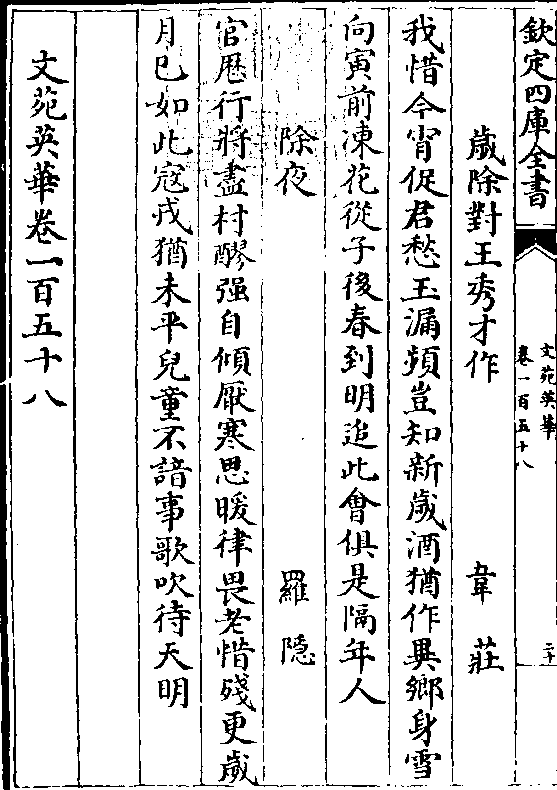 欽定四庫全書
文苑英華
卷一百五十八
二十
歲除對王秀才作 韋莊
我惜今宵促君愁玉漏頻豈知新歲酒猶作異鄉身雪
向寅前凍花從子後春到明追此會俱是隔年人
除夜 羅隱
官厯行將盡村醪强自傾厭寒思暖律畏老惜殘更歲
月已如此寇戎猶未平兒童不諳事歌吹待天明
文苑英華卷一百五十八